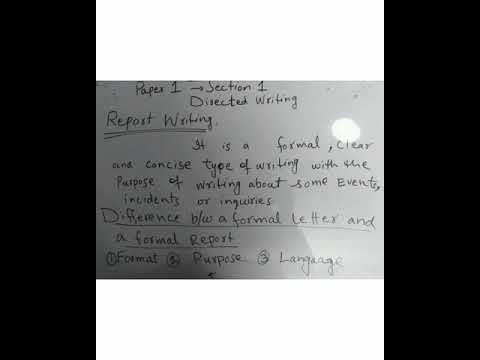 Paper 1 → Section 1
Directed Writing
Report Writing.
It is a formal, clear
and concise type of writing with the
Purpose of writing about some Events,
incidents or inquiries
Difference b/w a formal letter and
a formal Report
① Format ② Purpose ③ Language